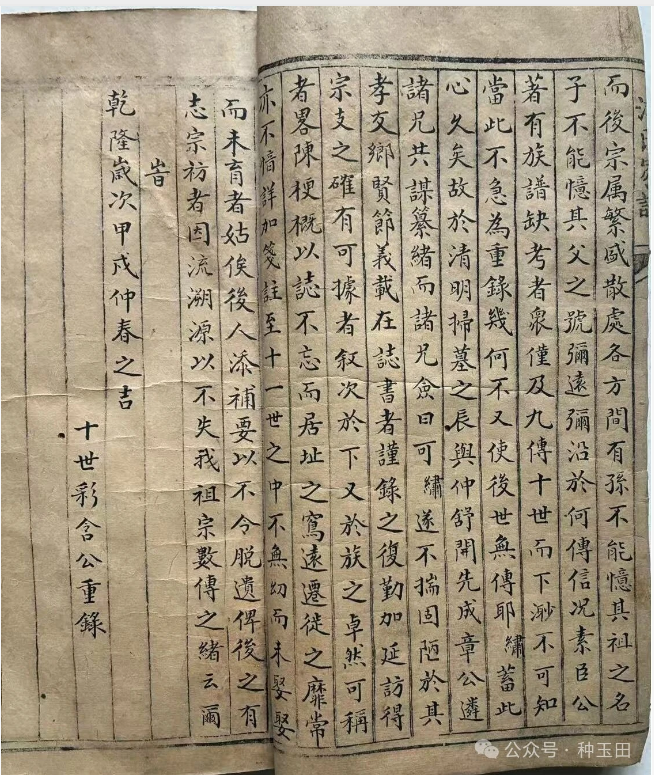 而後宗属繁盛散處各方間有孫不能憶其祖之名
子不能憶其父之號彌遠彌沿於何傳信况素臣公
著有族譜缺考者衆僅及九傳十世而下渺不可知
當此不急為重錄幾何不又使後世無傳耶繡蓄此
心久矣故於清明掃墓之辰與仲舒開先成章公遴
諸兄共謀纂緒而諸兄僉曰可繡遂不揣固陋於其
孝友鄉賢節義載在誌書者謹錄之復勤加延訪得
宗支之確有可據者叙次於下又於族之卓然可稱
者畧陳梗概以誌不忘而居址之寫遠遷徙之靡常
亦不惜詳加箋註至十一世之中不無幼而未娶娶
而未育者姑俟後人添補要以不令脱遺俾後之有
志宗祊者因流溯源以不失我祖宗數傳之緒云爾
旹
乾隆歲次甲戌仲春之吉
十世彩含公重錄
公众号·种玉田